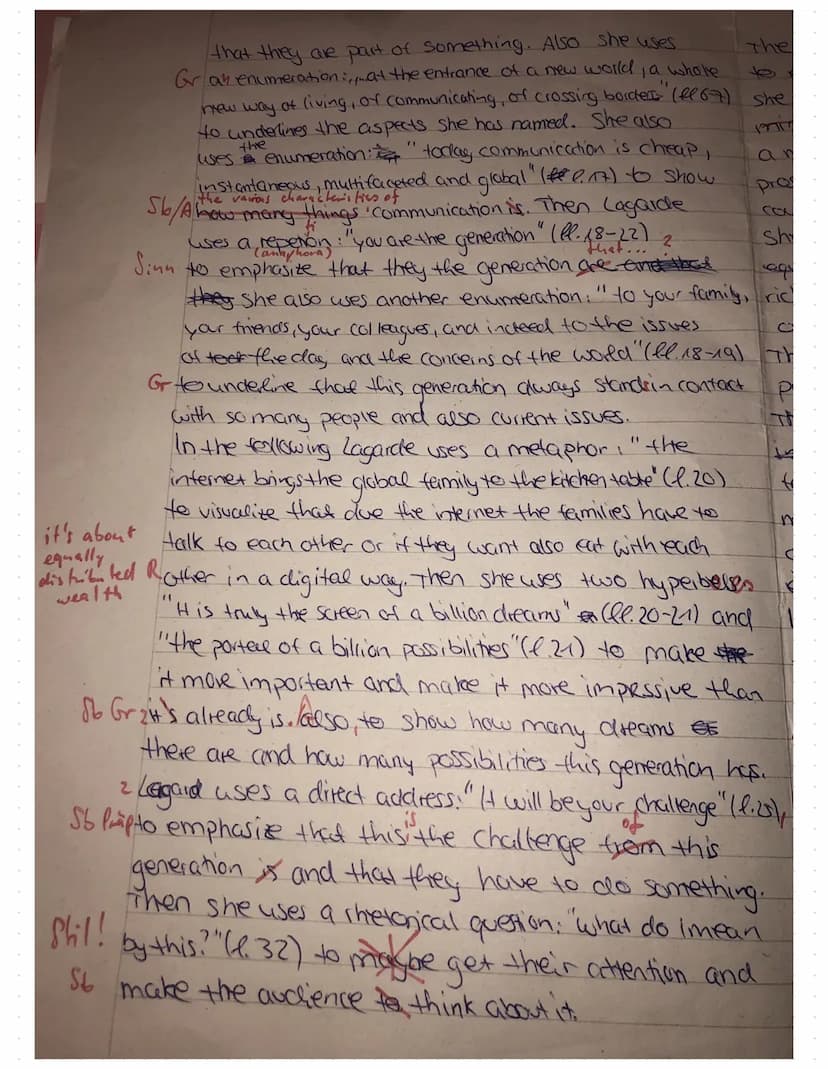 that they are part of something. Also she uses
Gr an enumeration: "at the entrance of a new world, a whole
new way of living, of communicating, of crossing borders" (ll 67)
to underlines the aspects she has named. She also
the
uses enumeration: "today, communication is cheap,
instantaneous, multifaceted and global" (l. 17) to show
the various characteristics of
Sb/A how many things communication is. Then Lagarde
ti
uses a repetion: "you are the generation" (ll. 18-22)
(anaphora) that... ?
Sinn to emphasize that they the generation are and that
they she also uses another enumeration: "to your family,
your friends, your colleagues, and indeed to the issues
of the day, and the concerns of the world" (ll. 18-19)
Gr to underline that this generation always stands in contact
with so many people and also current issues.
In the following Lagarde uses a metaphor: "the
internet brings the global family to the kitchen table" (l. 20)
to visualize that due the internet the families have to
it's about
equally
distributed
wealth
talk to each other or if they want also eat with each
R other in a digital way. Then she uses two hyperboles
"It is truly the screen of a billion dreams" (ll. 20-21) and
"the portal of a billion possibilities" (l. 21) to make
it more important and make it more impressive than
Sb Gr z it's already is. Also, to show how many dreams
there are and how many possibilities this generation has.
z Lagard uses a direct address: "It will be your challenge" (l. 25),
is of
Sb Präp to emphasize that this the challenge from this
generation is and that they have to do something.
Then she uses a rhetorical question: "what do I mean
Stil! by this?" (l. 32) to maybe get their attention and
Sb make the audience to think about it.
The
to
she
an
pros
Sh
ric
Th